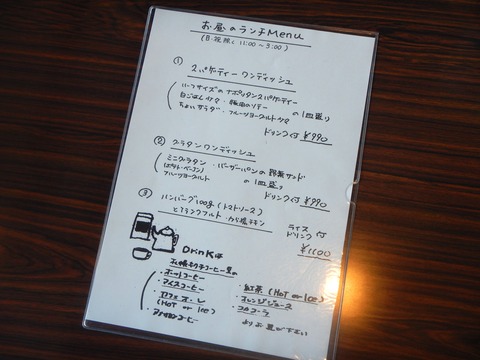 お昼のランチMenu
(日・祝除く 11:00~3:00)
①
スパゲティー ワンディッシュ
ハーフサイズの ナポリタンスパゲティー
白ごはん少々・豚肉のソテー
の1皿盛り
ちょいサラダ・フルーツヨーグルト少々
ドリンク付 ¥990
②
グラタンワンディッシュ
ミニグラタン・バーガーパンの野菜サンド
(ポテト・ベーコン)
の1皿盛り
フルーツヨーグルト
ドリンク付 ¥990
③
ハンバーグ100g(トマトソース)
とフランクフルト・から揚チキン
ライス
ドリンク
付
¥1100
Drinkは
コーヒー
・ホットコーヒー
・アイスコーヒー
・カフェオーレ
(HOT or Ice)
・アメリカンコーヒー
・紅茶 (HOT or Ice)
・オレンジジュース
・コカコーラ
よりお選び下さい